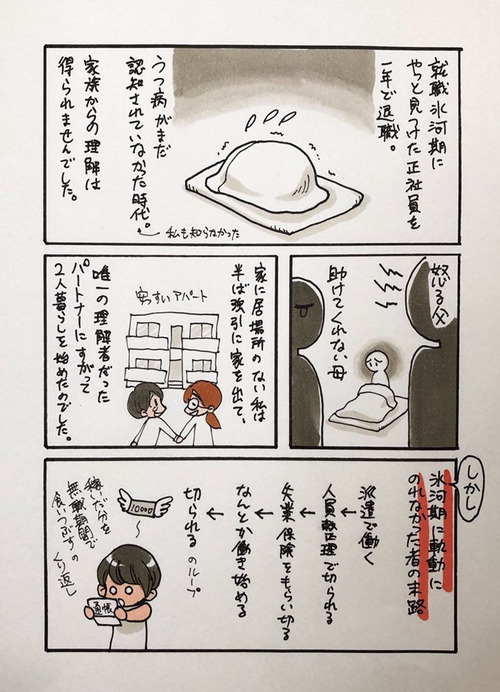 就職氷河期に
やっと見つけた正社員を
一年で退職。
うつ病がまだ
認知されていなかった時代。
私も知らなかった
家族からの理解は
得られませんでした。
怒る父
助けてくれない母
家に居場所のない私は
半ば強引に家を出て、
安っすいアパート
唯一の理解者だった
パートナーにすがって
2人暮らしを始めたのでした。
しかし
氷河期に軌道に
のれなかった者の末路
派遣で働く
人員整理で切られる
失業保険をもらい切る
なんとか働き始める
切られる のループ
10000
通帳
稼いだ分を
無職期間で
食いつぶすの
くり返し